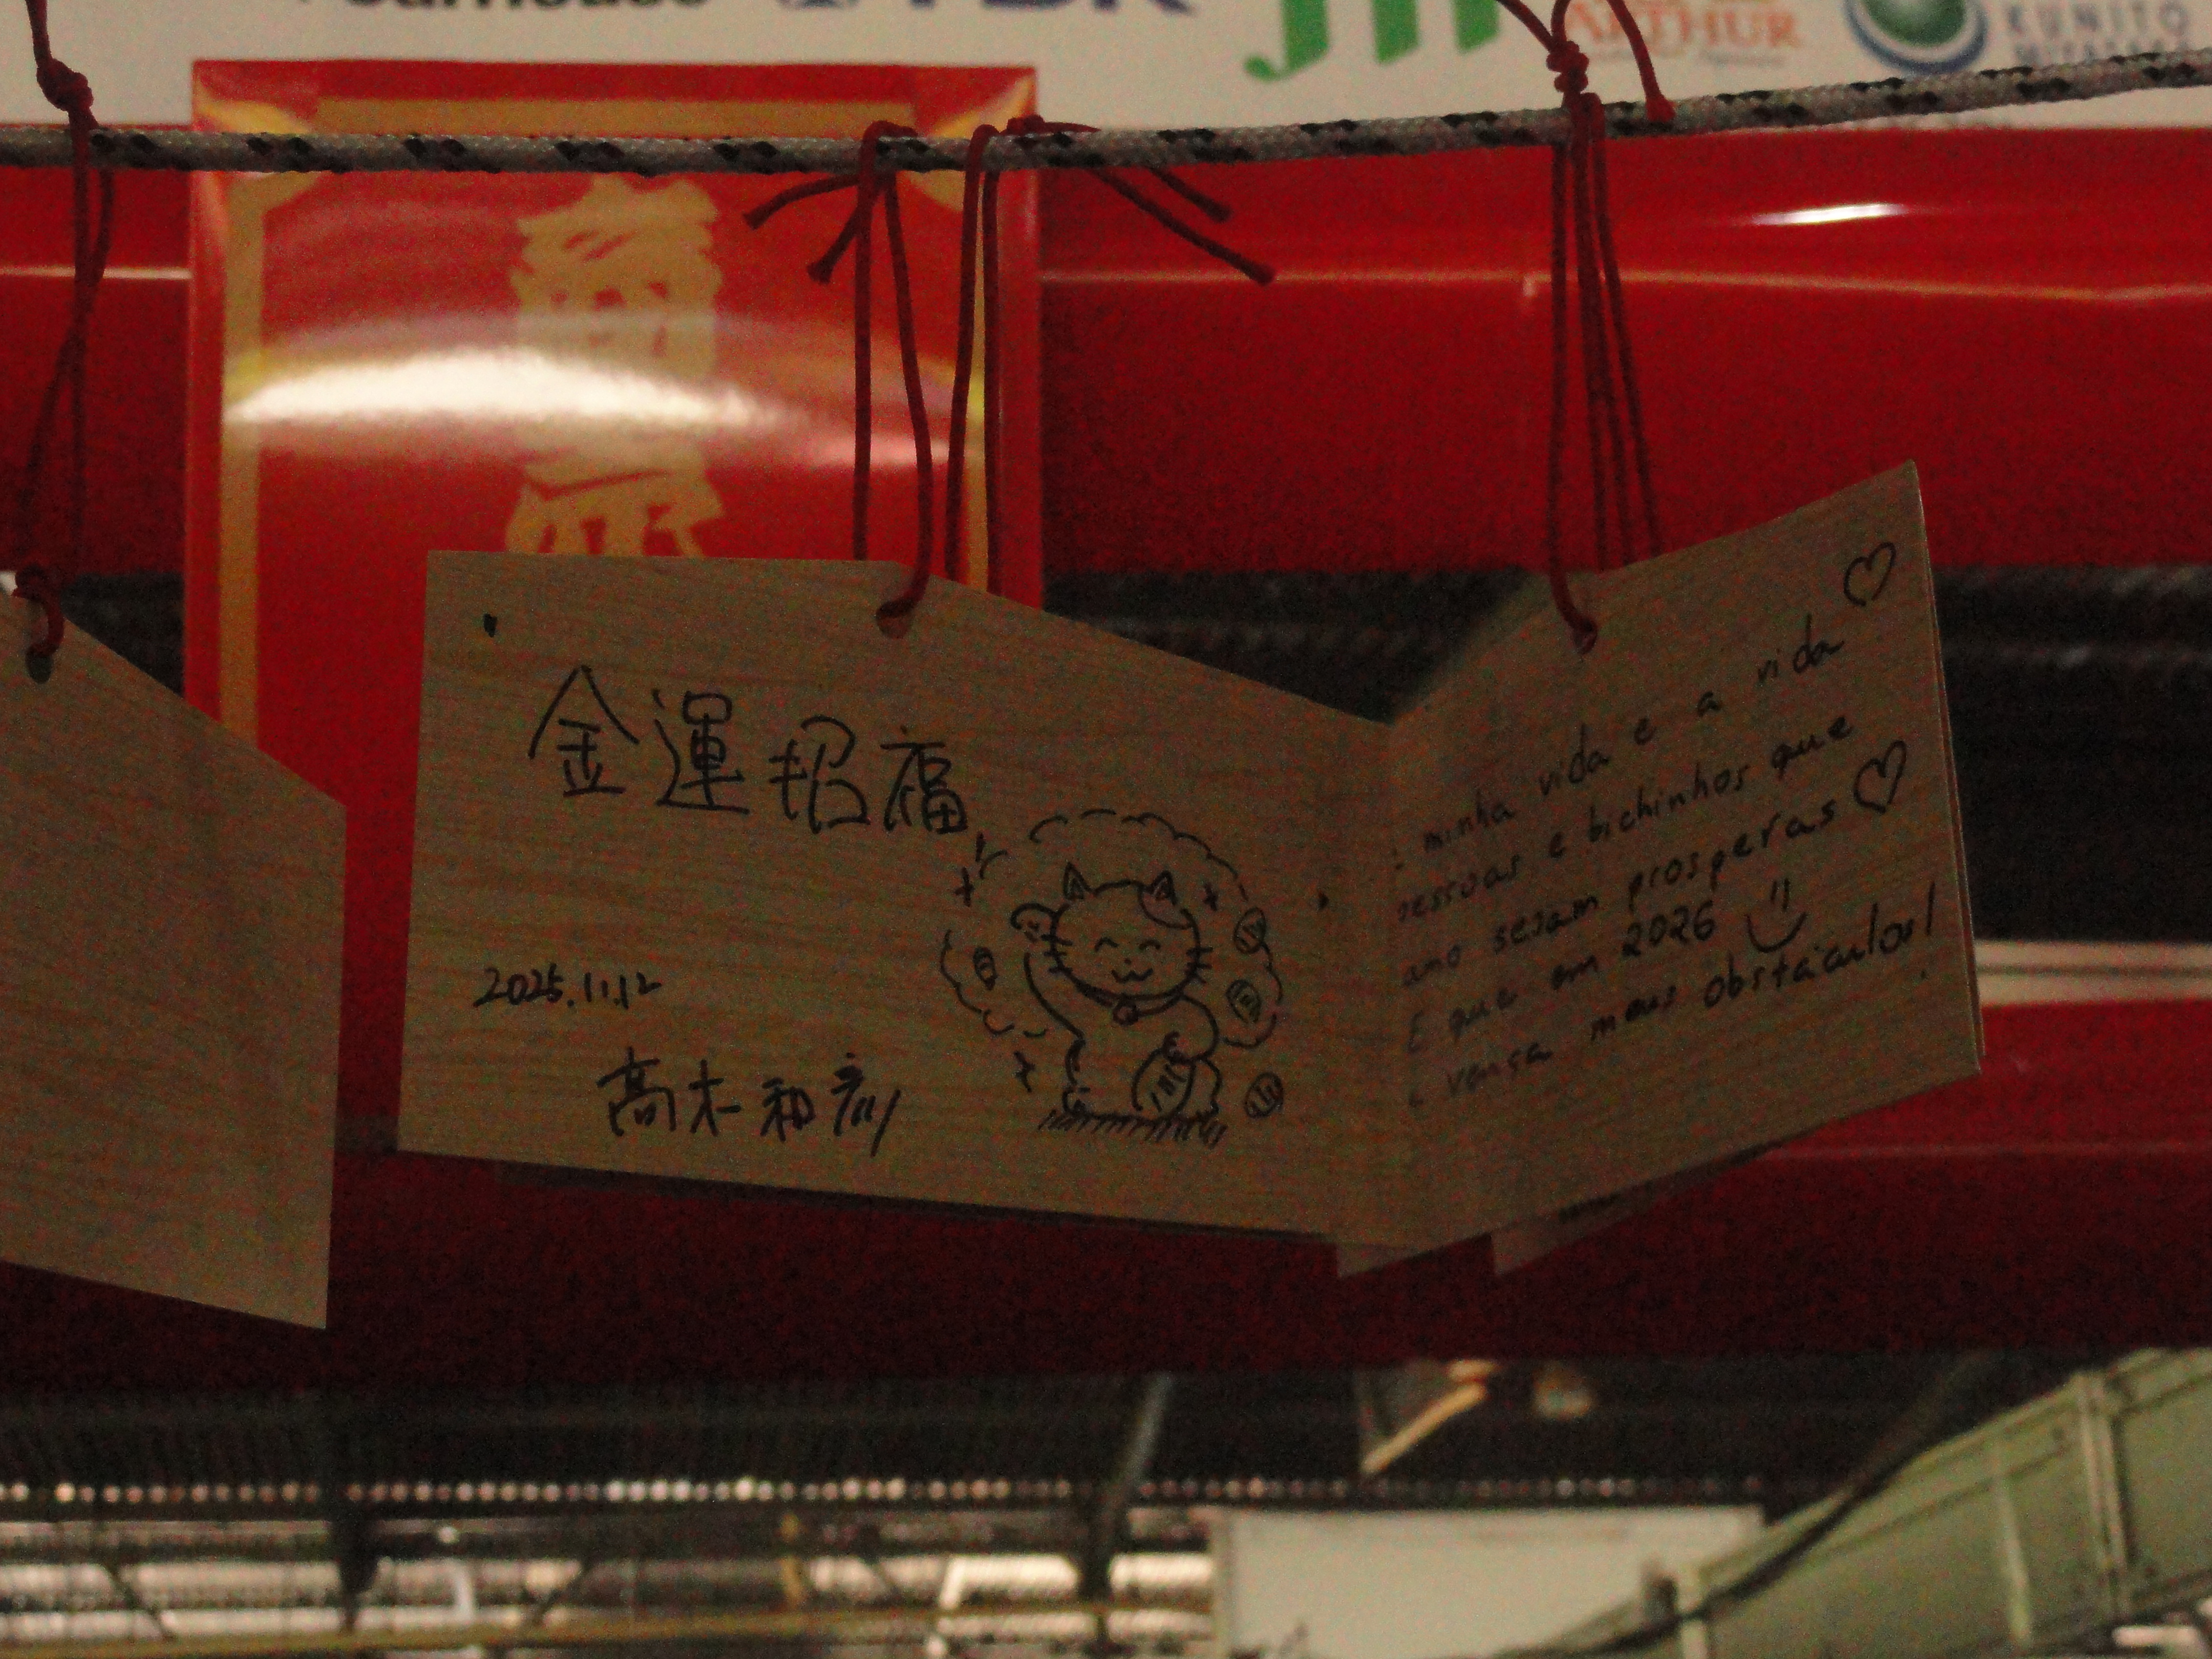 ARTHUR
KUNITO
金運招福
2025.11.12
高木和彦
minha vida e a vida
pessoas e bichinhos que
amo sejam prosperas
E que em 2026
vença meus obstáculos!